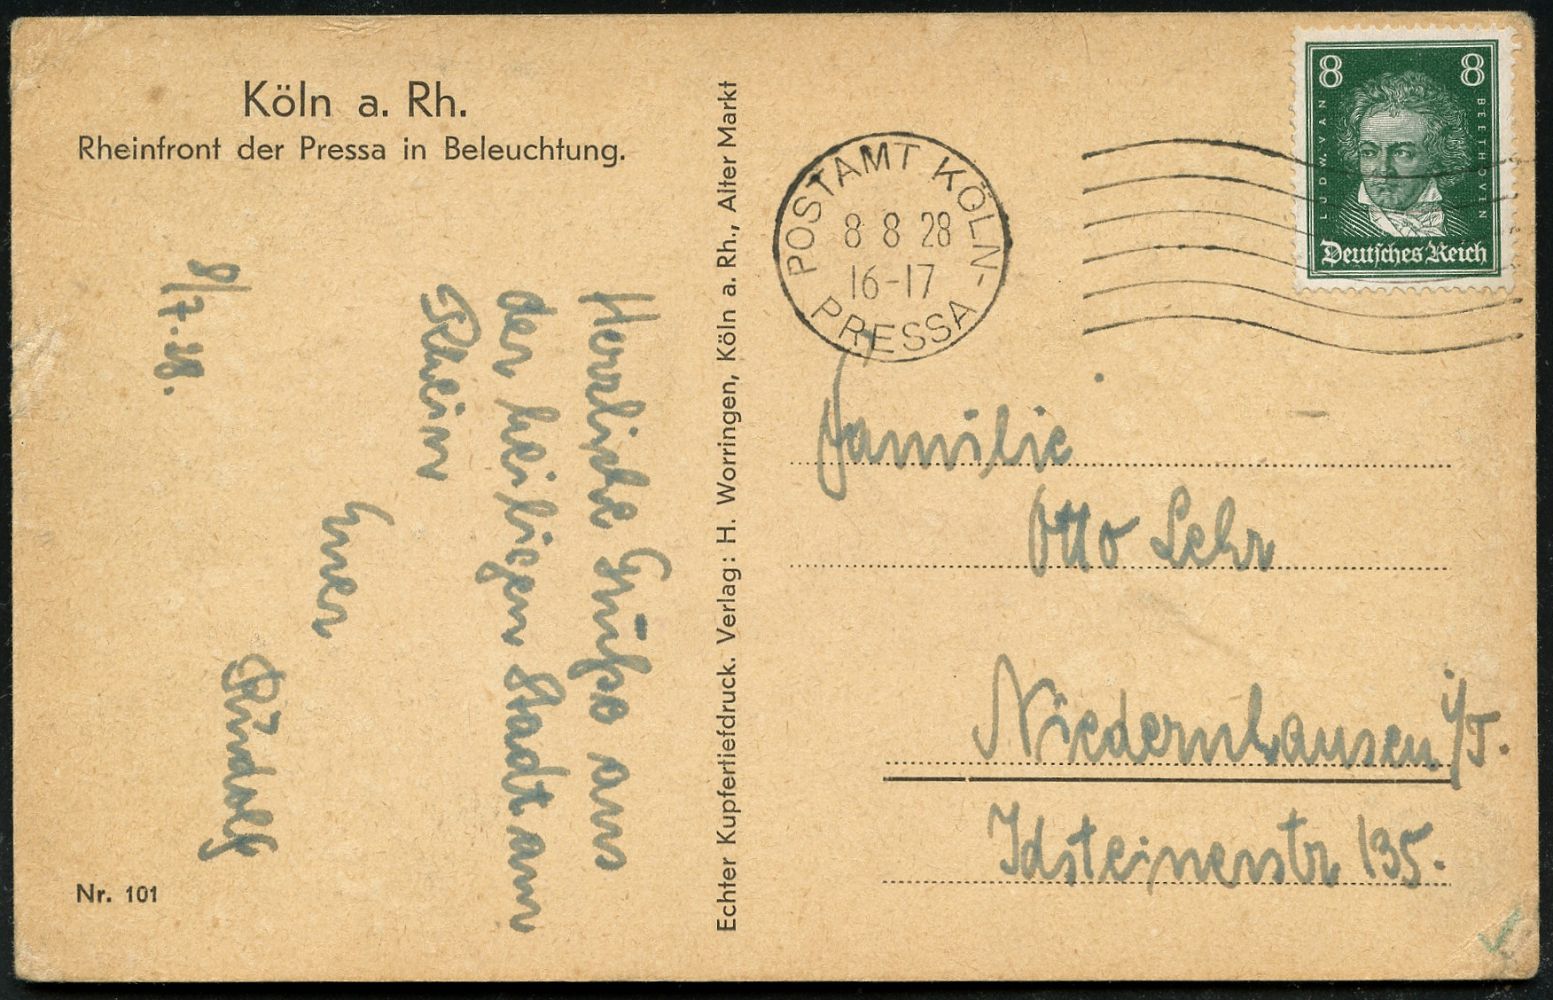 Köln a. Rh.
Rheinfront der Pressa in Beleuchtung.
8/7.28.
Herzliche Grüße aus
der heiligen Stadt am
Rhein
Euer
Rudolf
Nr. 101
Echter Kupfertiefdruck. Verlag: H. Worringen, Köln a. Rh., Alter Markt
POSTAMT KÖLN-
8 8 28
16-17
PRESSA
8 8
LUDW. VAN
BEETHOVEN
Deutsches Reich
Familie
Otto Lehr
Niedernhausen i/T.
Idsteinerstr 135.